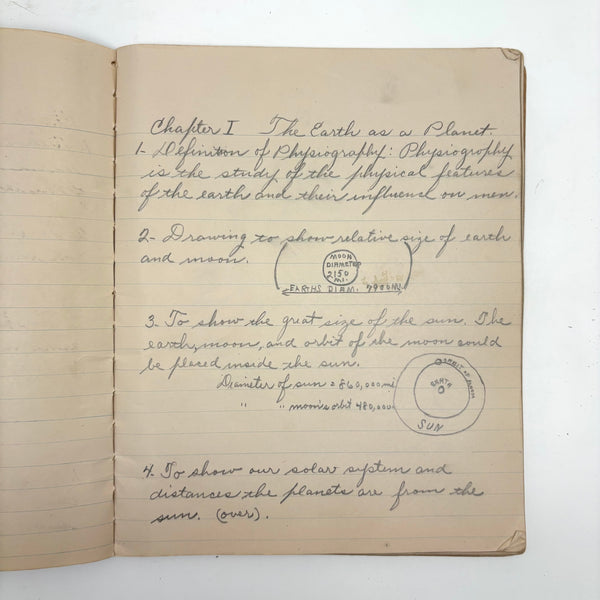 Chapter I The Earth as a Planet.
1- Definition of Physiography: Physiography
is the study of the physical features
of the earth and their influence on men.
2- Drawing to show relative size of earth
and moon.
MOON
DIAMETER
2150
MI.
EARTHS DIAM. 7900MI.
3. To show the great size of the sun. The
earth, moon, and orbit of the moon could
be placed inside the sun.
Diameter of sun = 860,000mi
" " moon's orbit 480,000
ORBIT OF MOON
EARTH
SUN
4. To show our solar system and
distances the planets are from the
sun. (over).